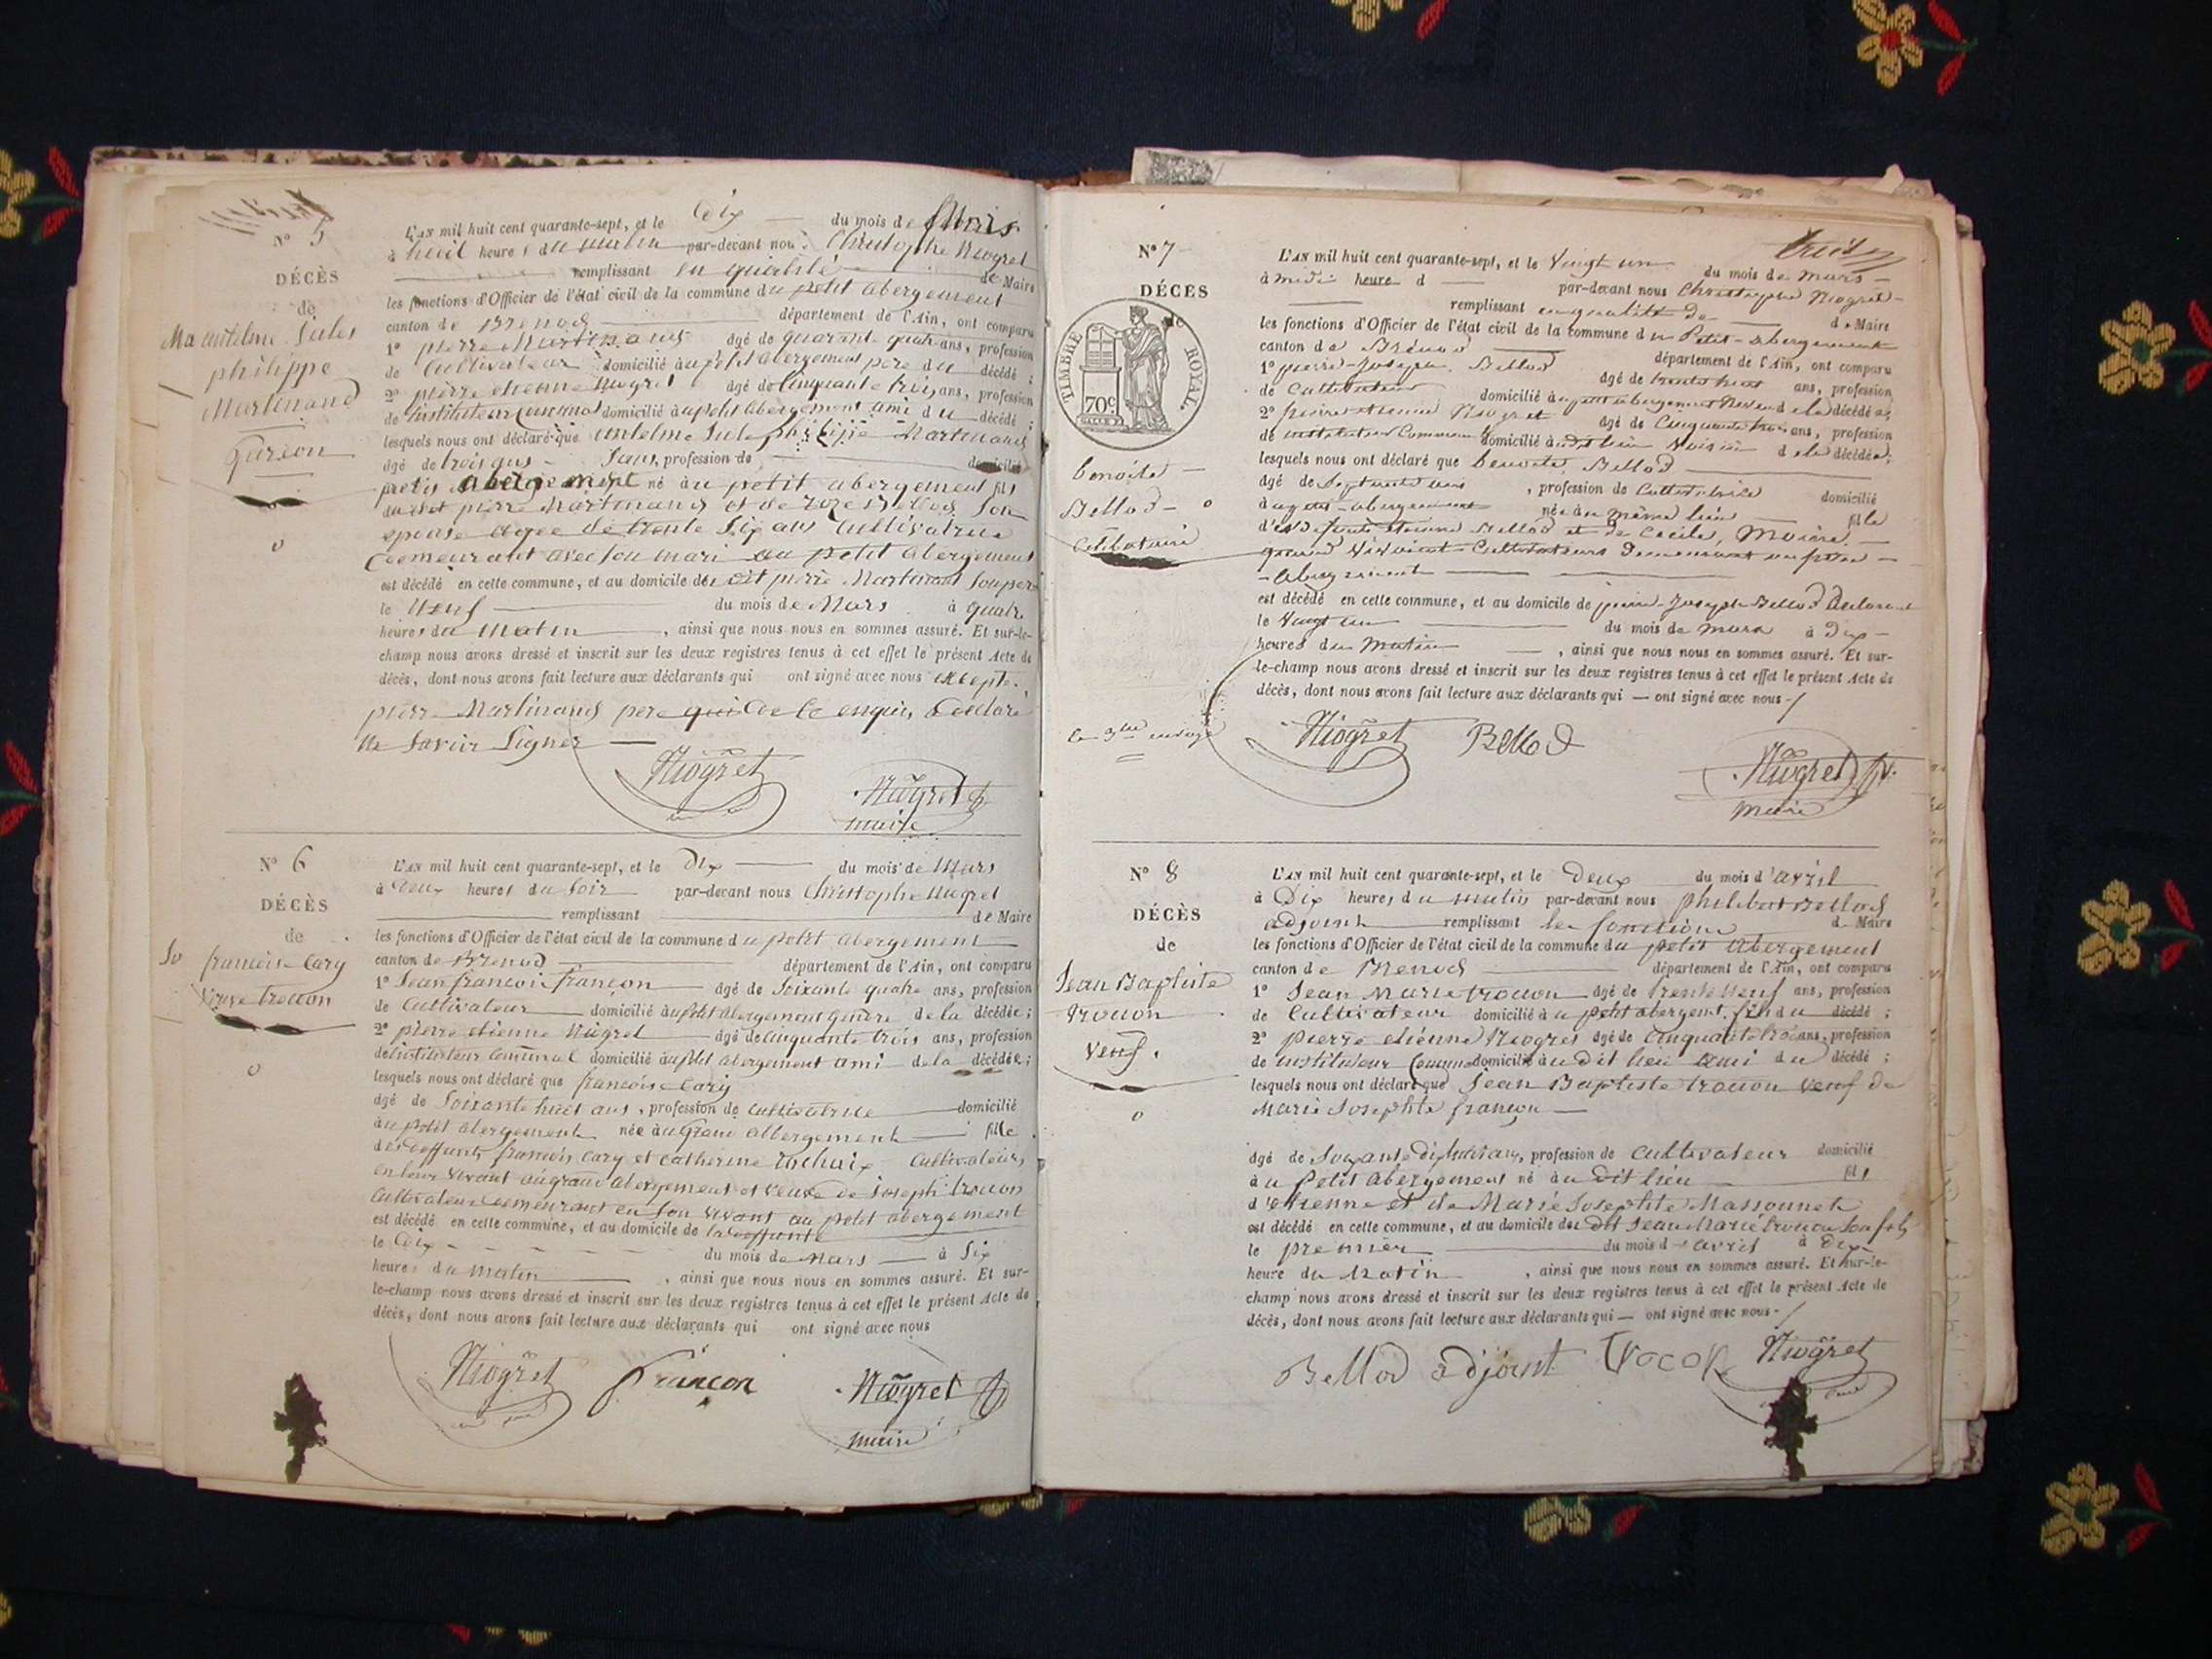 Nº 5
DÉCÈS
de
Jules
philippe
Martinand
garcon
L'AN mil huit cent quarante-sept, et le Dix du mois de Mars
à huit heures du matin par-devant nous Christophe Niogret
remplissant en qualité de Maire
les fonctions d'Officier de l'état civil de la commune du petit abergement
canton de Brenod département de l'Ain, ont comparu
1º pierre Martinand âgé de quarante quatre ans, profession
de Cultivateur domicilié au petit abergement pere du décédé ;
2º pierre etienne Niogret âgé de Cinquante trois ans, profession
de instituteur Communal domicilié au petit abergement ami du décédé ;
lesquels nous ont déclaré que antelme Jule philippe Martinand
âgé de trois ans Sans, profession de domicilié
petit abergement né à u petit abergement fils
dudit pierre Martinand et de Bellod Son
epouse agée de trente Six ans Cultivatrice
demeurant avec son mari au petit abergement
est décédé en cette commune, et au domicile du dit pierre Martinand Son pere
le Neuf du mois de Mars à quatre
heures du Matin , ainsi que nous nous en sommes assuré. Et sur-le-
champ nous avons dressé et inscrit sur les deux registres tenus à cet effet le présent Acte de
décès, dont nous avons fait lecture aux déclarants qui ont signé avec nous excepté
pierre Martinand pere qui de ce enquis a declaré
Ne Savoir Signer
Niogret
Niogret
maire
Nº 6
DÉCÈS
de
francoise Cary
Veuve trocon
L'AN mil huit cent quarante-sept, et le Dix du mois de Mars
à Deux heures du Soir par-devant nous Christophe Niogret
remplissant de Maire
les fonctions d'Officier de l'état civil de la commune du petit abergement
canton de Brenod département de l'Ain, ont comparu
1º Jean francois françon âgé de Soixante quatre ans, profession
de Cultivateur domicilié au petit abergement Gendre de la décédée ;
2º pierre etienne Niogret âgé de Cinquante trois ans, profession
de instituteur Communal domicilié au petit abergement ami de la décédée ;
lesquels nous ont déclaré que francoise Cary
âgé de Soixante huit ans, profession de Cultivatrice domicilié
au petit abergement née à u Grand abergement fille
des deffunts francois Cary et Catherine Cultivateurs
en leur vivant au grand abergement et veuve de Joseph trocon
Cultivateur demeurant en son vivant au petit abergement
est décédé en cette commune, et au domicile de la deffunte
le Dix du mois de Mars à Six
heures du Matin , ainsi que nous nous en sommes assuré. Et sur-
le-champ nous avons dressé et inscrit sur les deux registres tenus à cet effet le présent Acte de
décès, dont nous avons fait lecture aux déclarants qui ont signé avec nous
Niogret françon Niogret
maire
Nº 7
DÉCÈS
de
TIMBRE ROYAL.
70c
benoite
Bellod
Celibataire
L'AN mil huit cent quarante-sept, et le Vingt un du mois de Mars
à midi heure d par-devant nous Christophe Niogret
remplissant en qualité de d Maire
les fonctions d'Officier de l'état civil de la commune du Petit-abergement
canton de Brénod département de l'Ain, ont comparu
1º pierre-Joseph Bellod âgé de trente huit ans, profession
de Cultivateur domicilié au petit abergement Neveu de la décédée ;
2º pierre etienne Niogret âgé de Cinquante trois ans, profession
de instituteur Communal domicilié à u dit lieu Voisin de la décédée ;
lesquels nous ont déclaré que benoite Bellod
âgé de ans , profession de Cultivatrice domicilié
à u petit-abergement née au même lieu fille
de Bellod et de Cecile Moine
quand vivaient Cultivateurs demeurant au petit
-abergement
est décédé en cette commune, et au domicile de pierre-Joseph Bellod Declarant
le Vingt un du mois de mars à dix
heures du Matin , ainsi que nous nous en sommes assuré. Et sur-
le-champ nous avons dressé et inscrit sur les deux registres tenus à cet effet le présent Acte de
décès, dont nous avons fait lecture aux déclarants qui — ont signé avec nous
Niogret Bellod
Niogret
maire
Nº 8
DÉCÈS
de
Jean Baptiste
trocon
Veuf.
L'AN mil huit cent quarante-sept, et le Deux du mois d'avril
à Dix heures du matin par-devant nous philibert Bellod
adjoint remplissant les fonctions d Maire
les fonctions d'Officier de l'état civil de la commune du petit abergement
canton de Brenod département de l'Ain, ont comparu
1º Jean Marie trocon âgé de trente Neuf ans, profession
de Cultivateur domicilié à u petit abergemt. fils du décédé ;
2º pierre etiénne Niogret âgé de Cinquante trois ans, profession
de instituteur Communal domicilié à u dit lieu ami du décédé ;
lesquels nous ont déclaré que Jean Baptiste trocon Veuf de
Marie Josephte françon
âgé de Soixante dix huit ans, profession de Cultivateur domicilié
à u petit abergement né à u dit lieu fils
d'etienne et de Marie Josephte Massonnet
est décédé en cette commune, et au domicile du dit Jean Marie trocon Son fils
le premier du mois d'avril à dix
heure du Matin , ainsi que nous nous en sommes assuré. Et sur-le-
champ nous avons dressé et inscrit sur les deux registres tenus à cet effet le présent Acte de
décès, dont nous avons fait lecture aux déclarants qui — ont signé avec nous
Bellod adjoint trocon Niogret